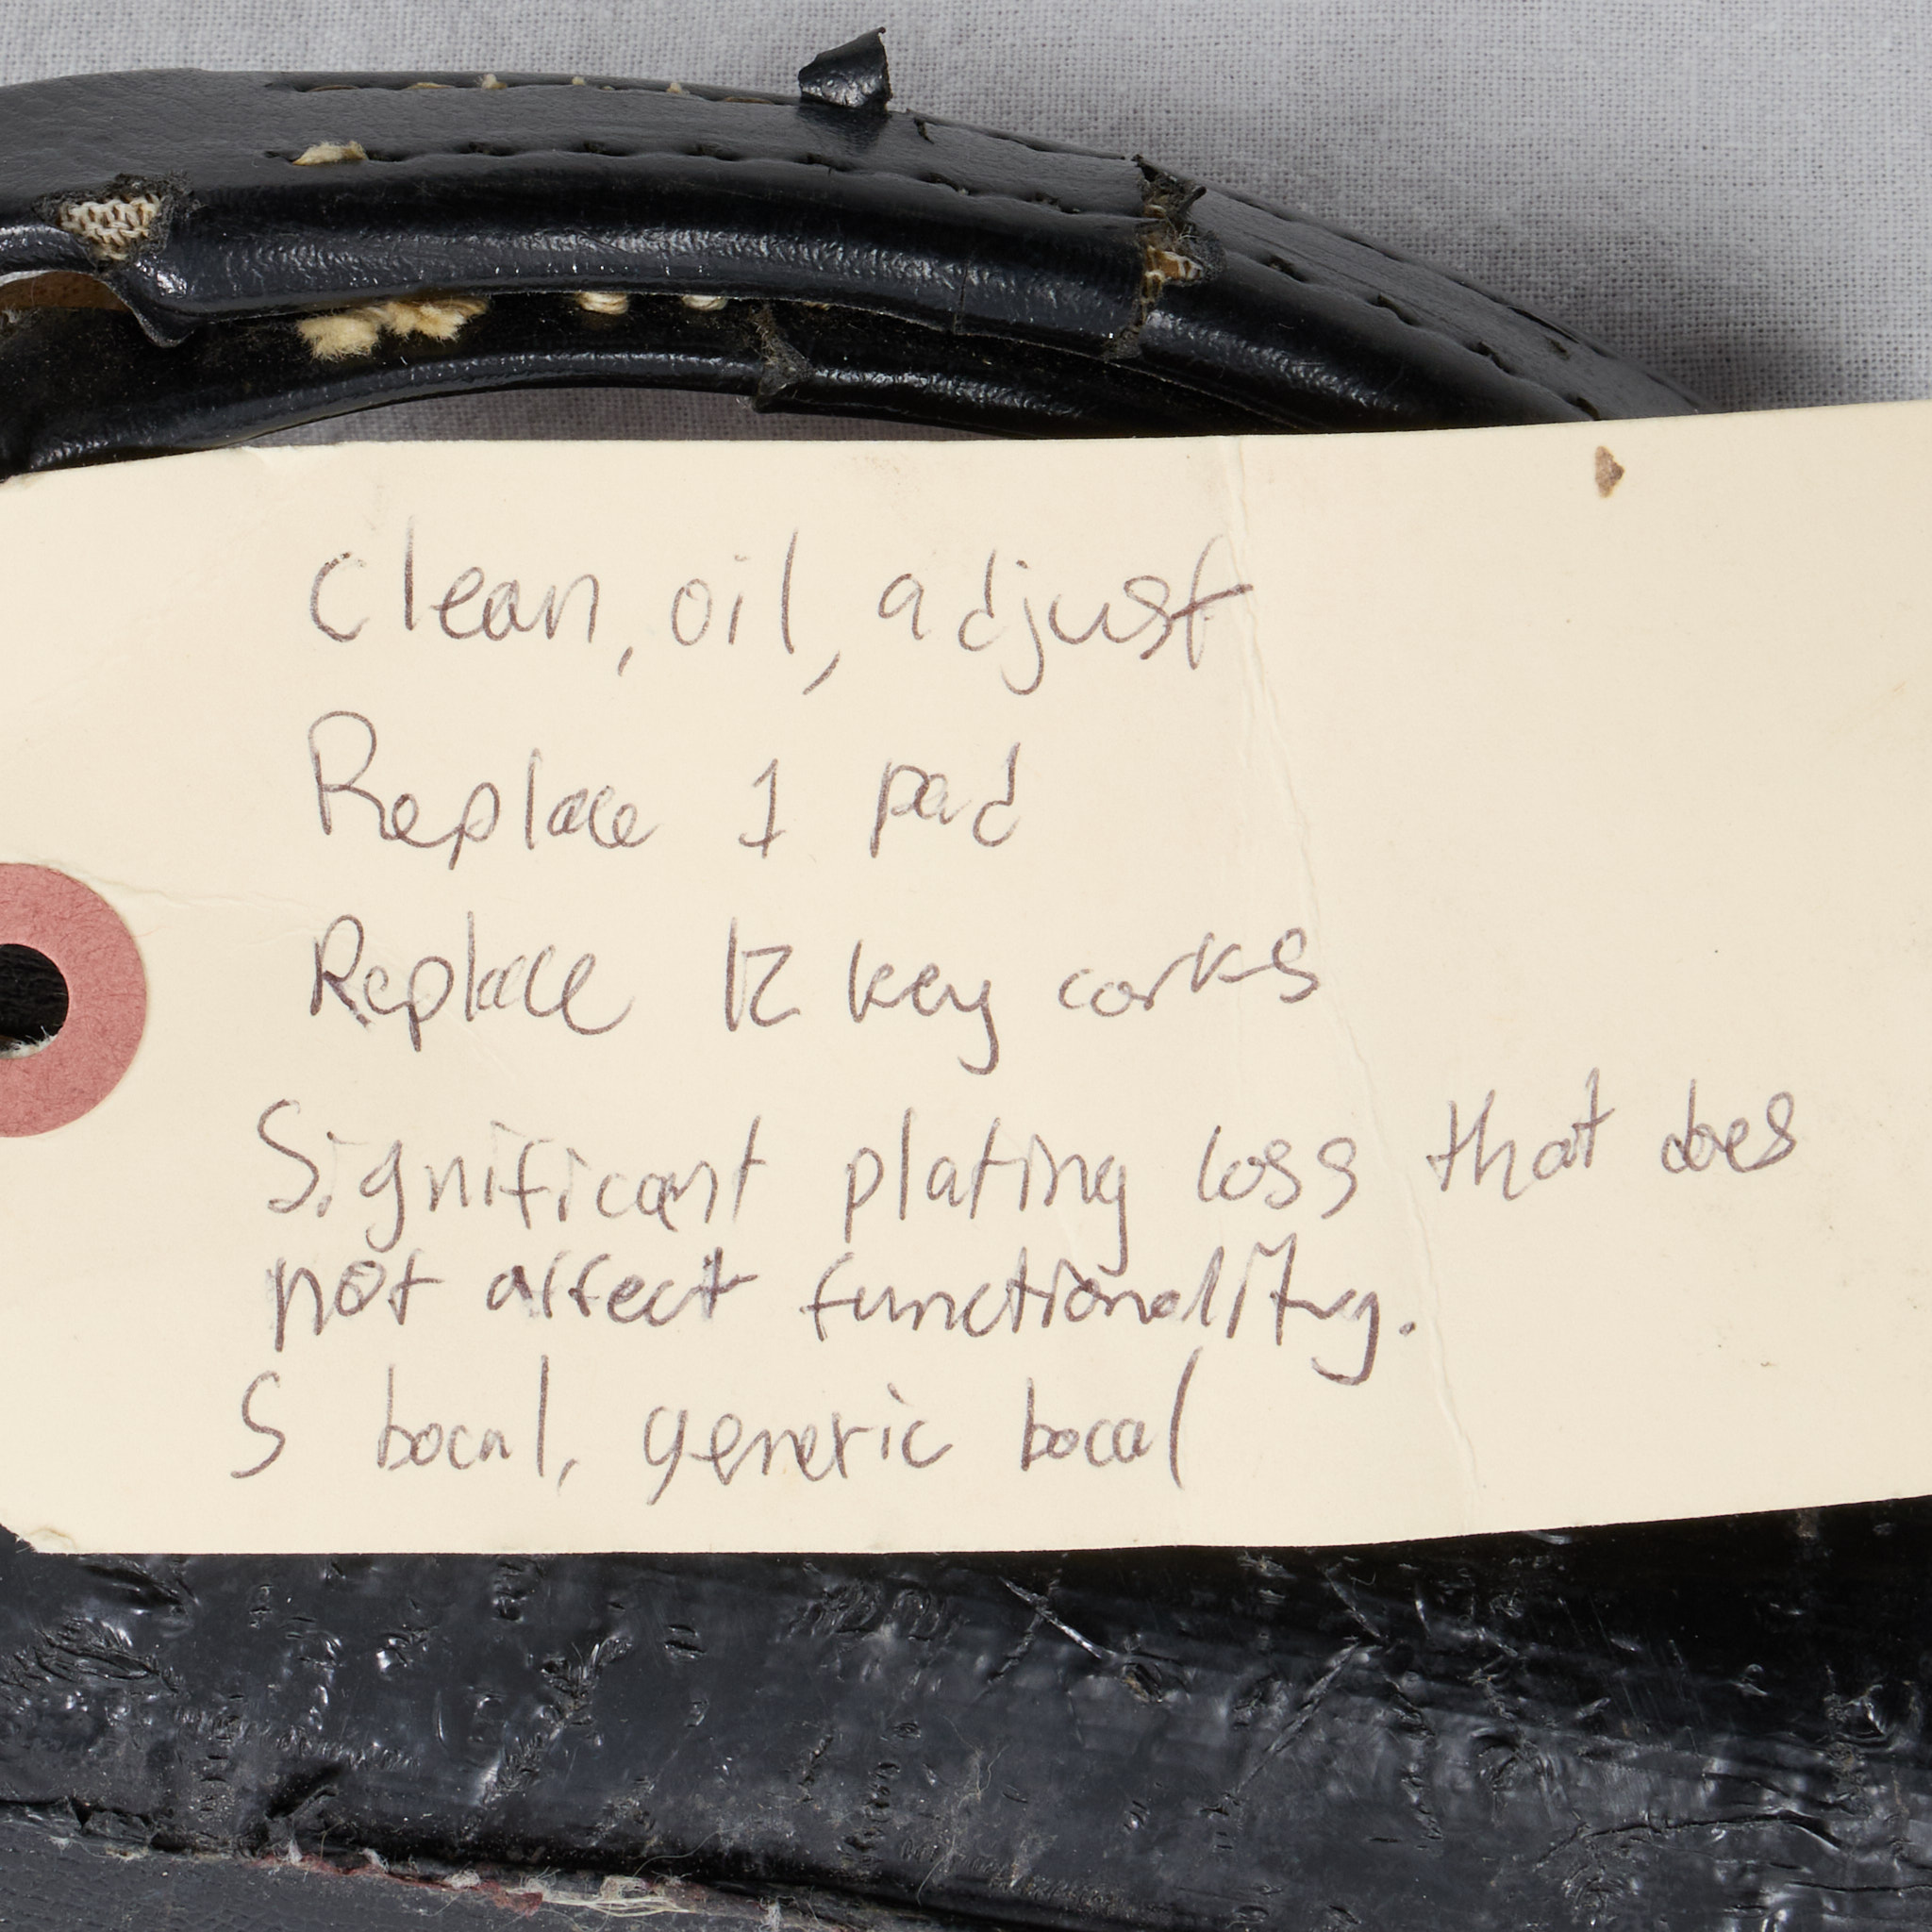 Clean, oil, adjust
Replace 1 pad
Replace 12 key corks
Significant plating loss that does
not affect functionality.
S bocal, generic bocal